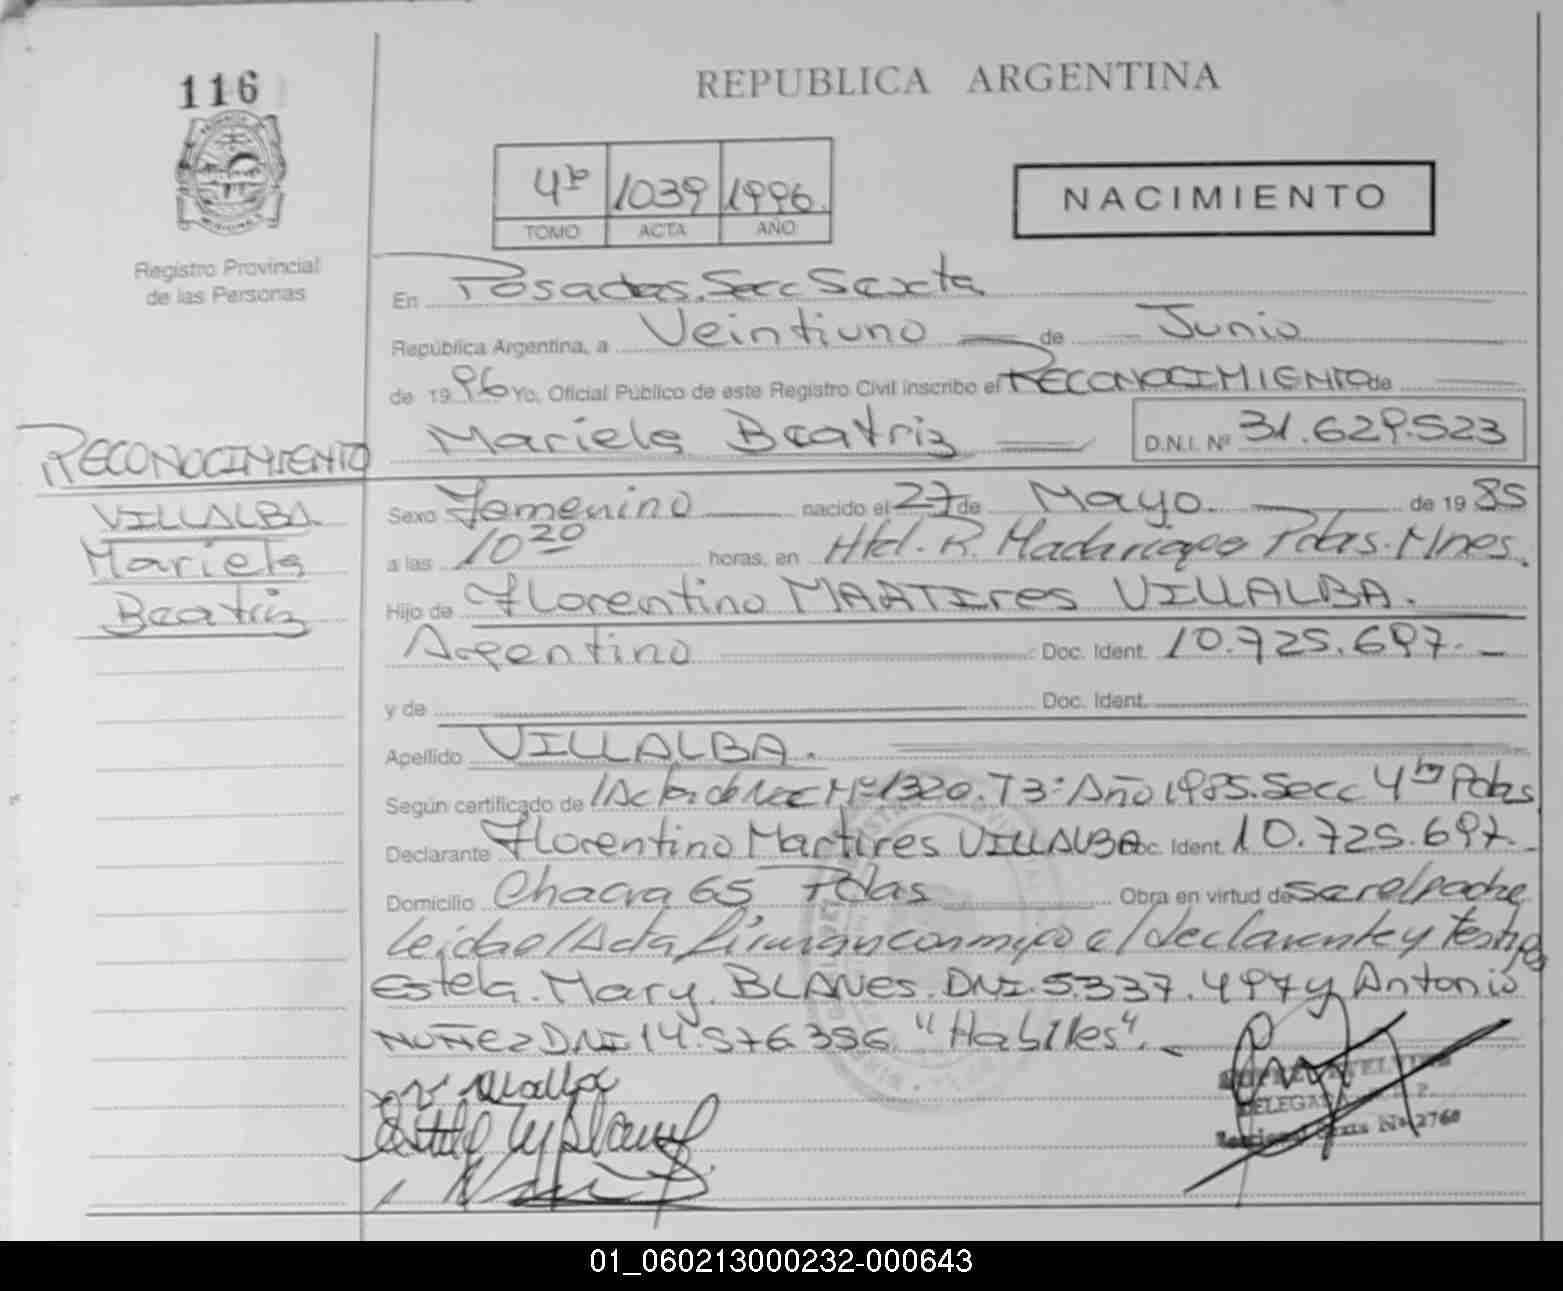 116
REPUBLICA ARGENTINA
4to 1039 1996
TOMO ACTA AÑO
NACIMIENTO
Registro Provincial
de las Personas
En Posadas. Secc Sexta
República Argentina, a Veintiuno de Junio
de 1996 Yo, Oficial Público de este Registro Civil inscribo el RECONOCIMIENTO de
Mariela Beatriz D.N.I. Nº 31.629.523
RECONOCIMIENTO
VILLALBA
Mariela
Beatriz
Sexo Femenino nacido el 27 de Mayo de 1985
a las 10 20 horas, en Htal. R. Madariaga Pdas. Mnes.
Hijo de Florentino MARTIres VILLALBA.
Argentino Doc. Ident. 10.725.697.
y de Doc. Ident.
Apellido VILLALBA.
Según certificado de /Acta de Nac Nº 1320. T3º Año 1985. Secc 4ta Pdas
Declarante Florentino Martires VILLALBA Doc. Ident. 10.725.697.
Domicilio Chacra 65 Pdas Obra en virtud de ser el padre
Leida e/Acta firman conmigo e/declarante y Testigos
Estela. Mary. BLANes. DNI. 5.337.497 y Antonio
NUÑez DNI 14.576.356 "Habiles".
DELEGADA
Nº 2760
01_060213000232-000643